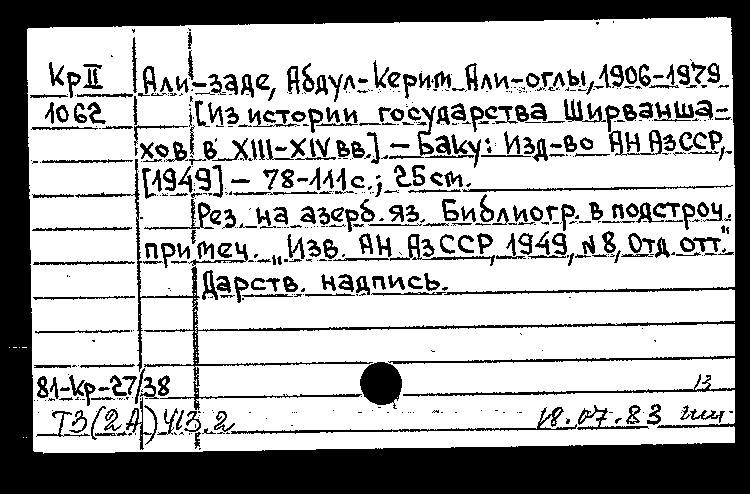 Кр II Али-заде, Абдул-Керим Али-оглы, 1906-1979
1062 [Из истории государства Ширванша-
хов в XIII-XIV вв.] - Баку: Изд-во АН АзССР,
[1949] - 78-111 с.; 25 см.
Рез. на азерб. яз. Библиогр. в подстроч.
примеч. „Изв. АН АзССР, 1949, N8, Отд. отт."
Дарств. надпись.
81-кр-27/38 13
Т3(2А)413.2 18.07.83